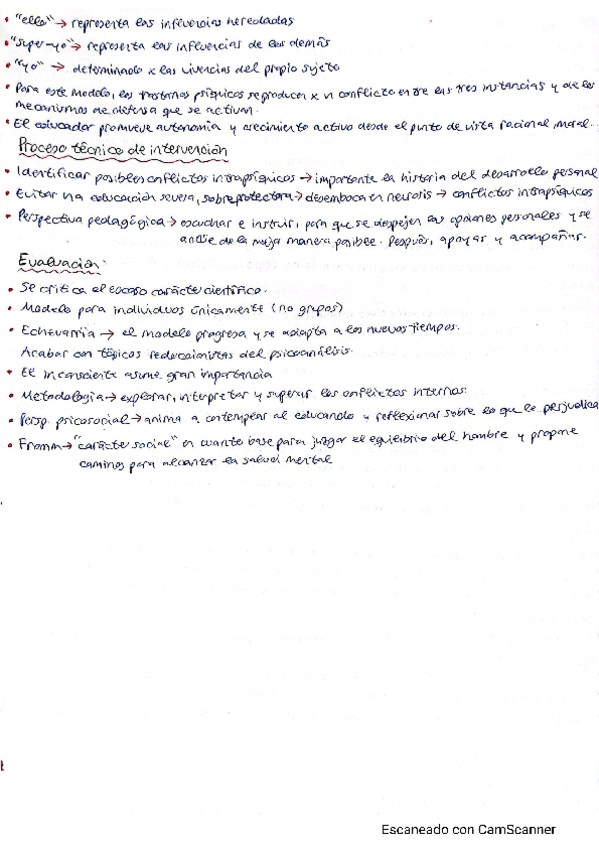 • "ello" → representa las influencias heredadas
• "super-yo" → representa las influencias de los demás
• "yo" → determinado x las vivencias del propio sujeto
• Para este modelo, los trastornos psíquicos se producen x un conflicto entre las tres instancias y de los
mecanismos de defensa que se activan.
• El educador promueve autonomía y crecimiento activo desde el punto de vista racional, moral...
Proceso técnico de intervención
• Identificar posibles conflictos intrapsíquicos → importante la historia del desarrollo personal
• Evitar una educación severa, sobreprotectora → desemboca en neurosis → conflictos intrapsíquicos
• Perspectiva pedagógica → escuchar e instruir, para que se despejen las opciones personales y se
analice de la mejor manera posible. Después, apoyar y acompañar.
Evaluación:
• Se critica el escaso carácter científico.
• Modelo para individuos únicamente (no grupos)
• Echevarría → el modelo progresa y se adapta a los nuevos tiempos.
Acabar con tópicos reduccionistas del psicoanálisis.
• El inconsciente asume gran importancia
• Metodología → explorar, interpretar y superar los conflictos internos.
• Persp. psicosocial → anima a contemplar al educando y reflexionar sobre lo que le perjudica
• Fromm → "carácter social" en cuanto base para juzgar el equilibrio del hombre y propone
caminos para alcanzar la salud mental
Escaneado con CamScanner